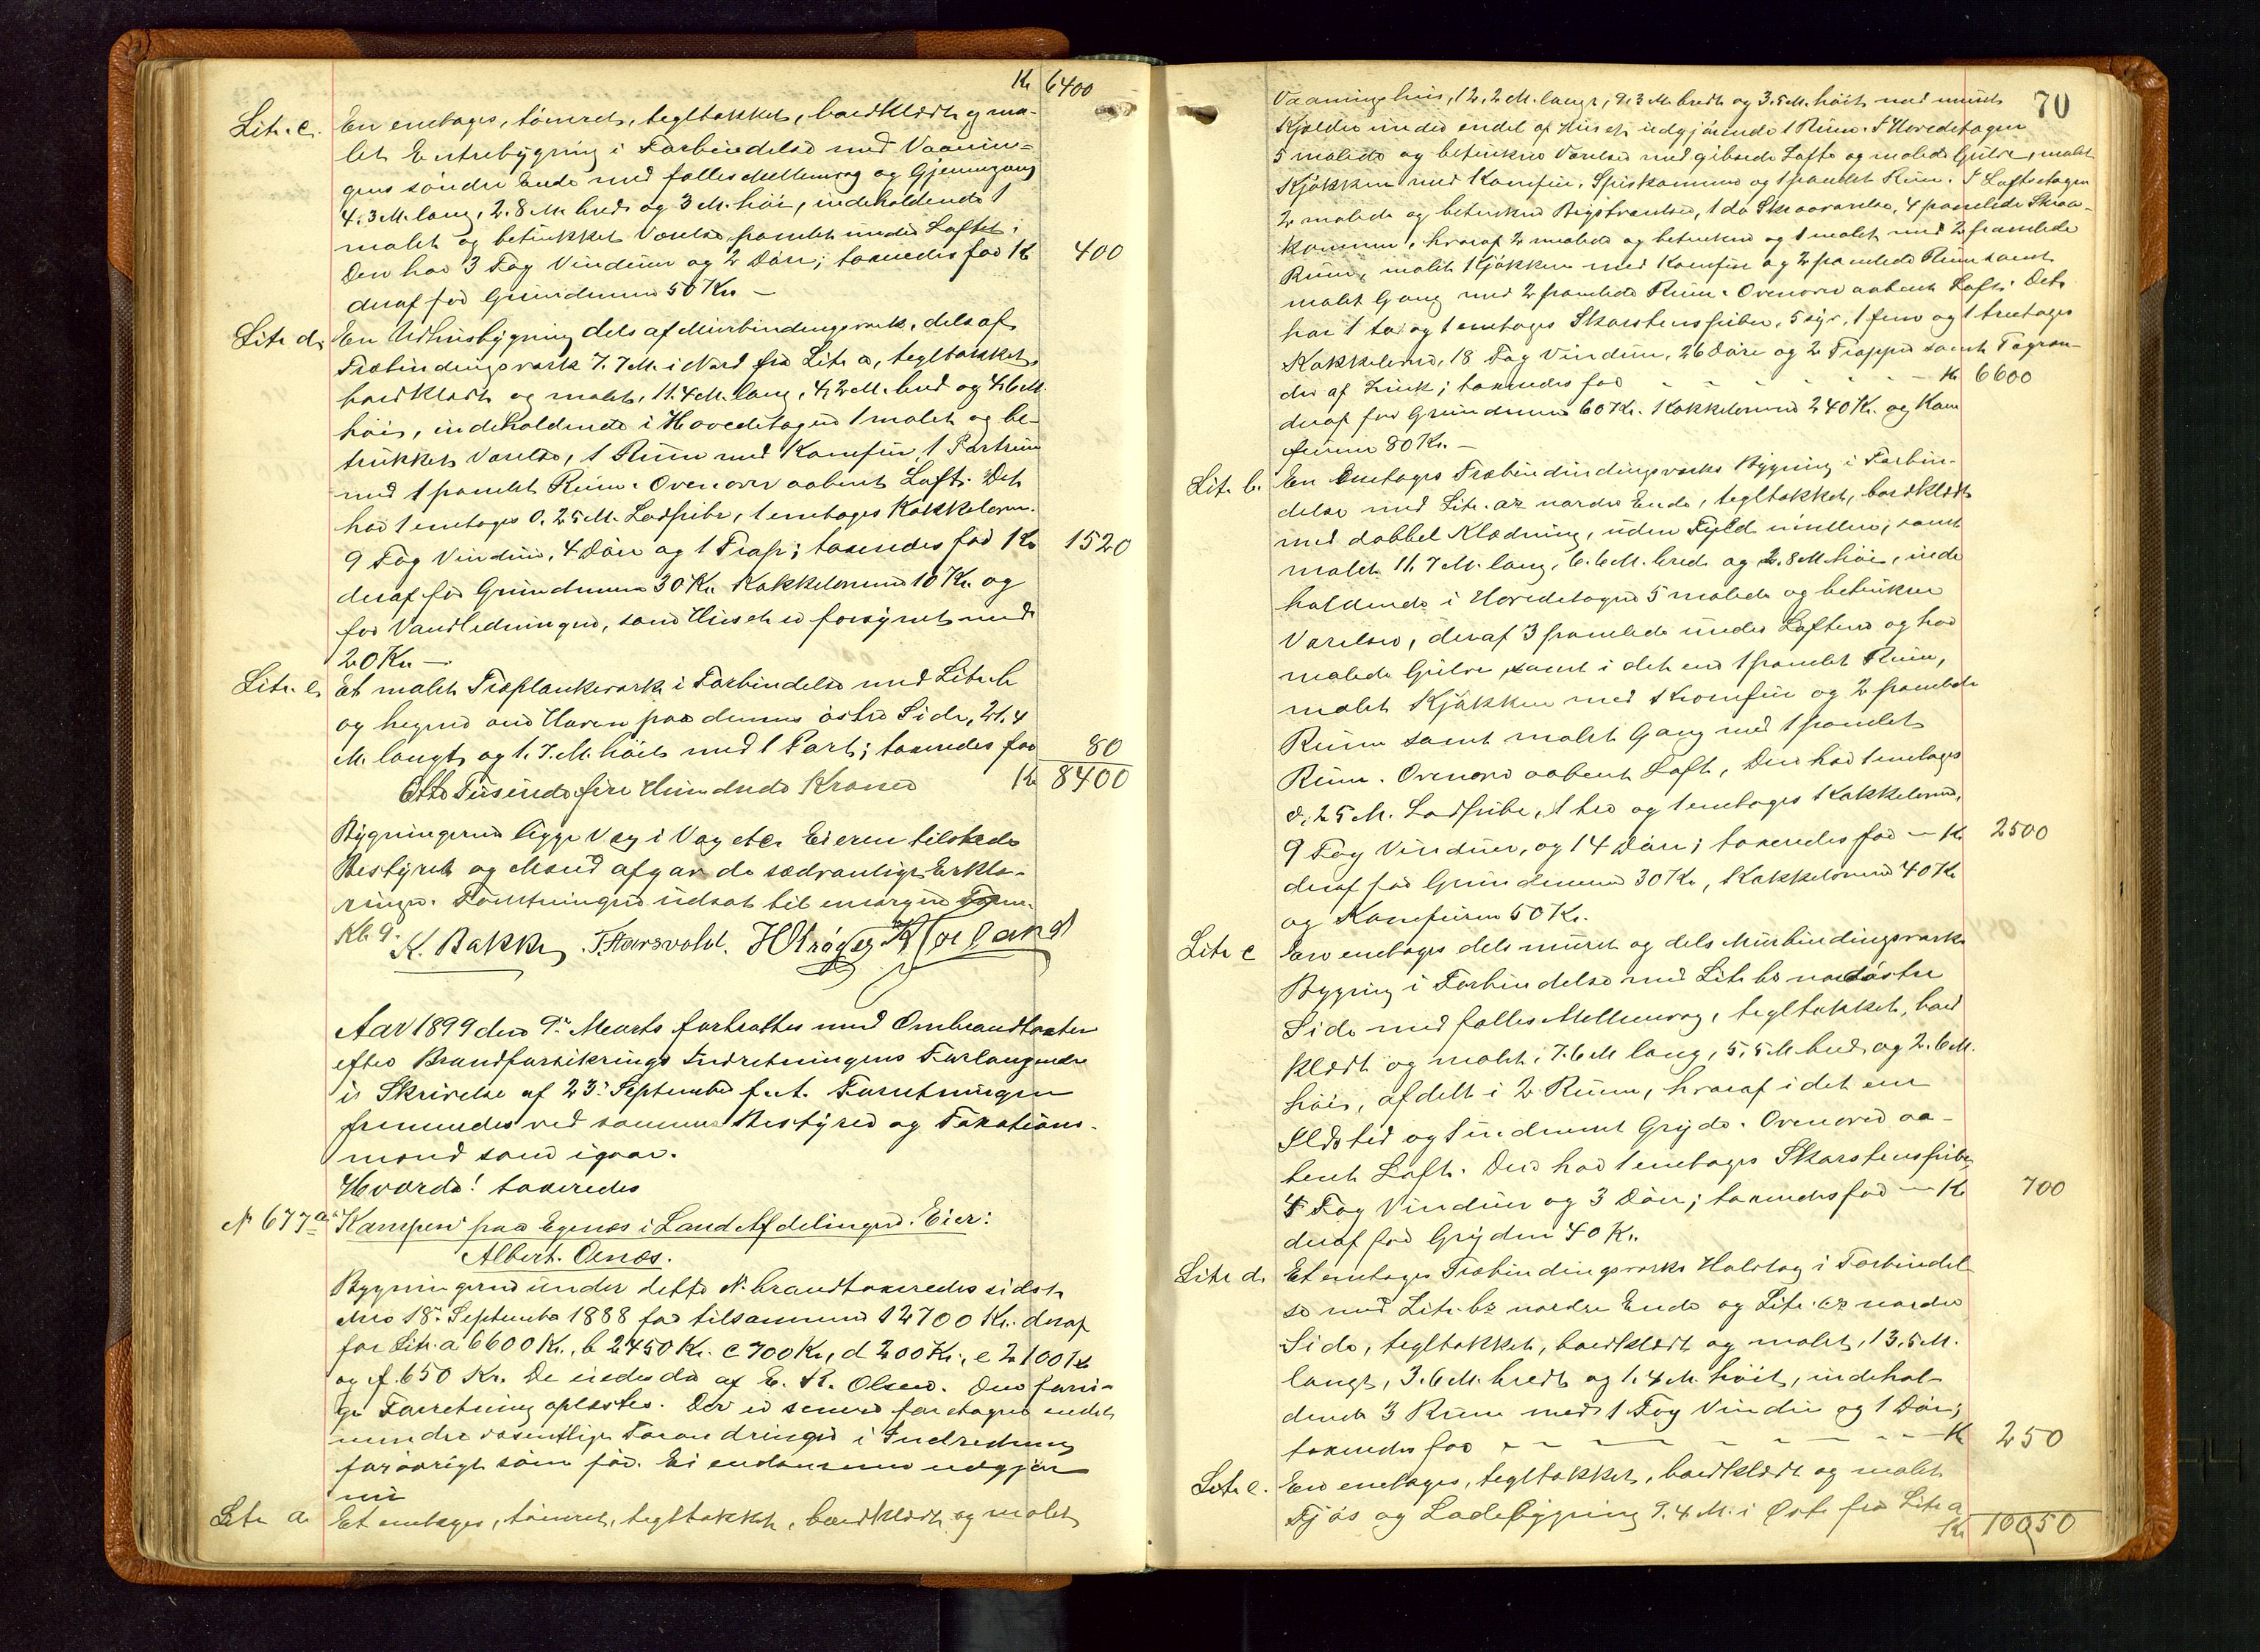 Kr 6400
Litr. c. En enetages, tømret, tegltækket, bordklædt og ma-
let Entrebygning i Forbindelse med Vaanin-
gens søndre Ende med fælles Mellemvæg og Gjennemgang
4.3 M. lang, 2.8 M. bred og 3 M. høi, indeholdende 1
malet og betrukket Værelse panelet under Loftet;
Den har 3 Fag Vinduer og 2 Døre; taxeredes for Kr 400
deraf for Grundmuren 50 Kr. —
Litr d. En Udhusbygning dels af Murbindingsværk, dels af
Træbindingsværk 7.7 M. i Nord fra Litr a, tegltækket,
bordklædt og malet, 11.4 M. lang, 4,2 M. bred og 4,6 M.
høi, indeholdende i Hovedetagen 1 malet og be-
trukket Værelse, 1 Rum med Komfur, 1 Portrum
med 1 panelet Rum. Ovenover aabent Loft. Det
har 1 enetages 0.25 M. Lodpibe, 1 enetages Kakkelovn.
9 Fag Vinduer, 4 Døre og 1 Trap; taxeredes for Kr 1520
deraf for Grundmuren 30 Kr. Kakkelovnen 10 Kr. og
for Vandledningen, som Huset er forsynet med
20 Kr —
Litr. e. Et malet Træplankeværk i Forbindelse med Litr b
og hegner om Haven paa dennes østre Side, 21.4
M. langt og 1.7 M. høit med 1 Port; taxeredes for 80
Otte Tusinde fire Hundrede Kroner Kr 8400
Bygningerne ligge Væg i Væg etc. Eieren tilstede
Bestyrer og Mænd afgav de sædvanlige Erklæ-
ringer. Forretningen udsat til imorgen Form.
Kl. 9.
K. Bakke, T. Haarsvold. H Krøger K Høiland
Aar 1899 den 9de Marts fortsattes med Ombrandtaxten
efter Brandforsikrings Indretningens Forlangende
i Skrivelse af 23de September f. A. Forretningen
fremmedes ved samme Bestyrer og Taxations-
mænd som igaar.
Hvorda! taxeredes
No 677a "Kampen" paa Egenæs i Land Afdelingen. Eier:
Albert Oenæs.
Bygningerne under dette No brandtaxeredes sidst
den 18de September 1888 for tilsammen 12700 Kr. deraf
for Litr. a 6600 Kr., b 2450 Kr. c 700 Kr, d 200 Kr., e 2100 Kr
og f. 650 Kr. De eiedes da af E. R. Olsen. Den forri-
ge Forretning oplæstes. Der er senere foretagen endel
mindre væsentlige Forandringer i Indredning
forøvrigt som før. Eiendommen udgjør
nu
Litr a Et enetages, tømret, tegltækket, bordklædt og malet
70
Vaaningshus, 12,2 M. langt, 9,3 M. bredt og 3.5 M. høit med muret
Kjælder under endel af Huset udgjørende 1 Rum. I Hovedetagen
5 malede og betrukne Værelser med gibsede Lofte og malede Gulve, malet
Kjøkken med Komfur, Spiskammer og 1 panelet Rum. I Loftsetagen
2 malede og betrukne Kvistværelser, 1 do Skraaværelse, 4 panelede Skraa-
kammer, hvoraf 2 malede og betrukne og 1 malet med 2 panelede
Rum, malet Kjøkken med Komfur og 2 panelede Rum samt
malet Gang med 2 panelede Rum. Ovenover aabent Loft. Det
har 1 to og 1 enetages Skorstenspiber, 5 syr, 1 fem og 1 treetages
Kakkelovne, 18 Fag Vinduer, 26 Døre og 2 Trapper samt Tagren-
der af Zink; taxeredes for - - - - - - Kr 6600
deraf for Grundmuren 60 Kr. Kakkelovnene 240 Kr. og Kom
furene 80 Kr. —
Litr. b. En enetages Træbindindingsværks Bygning i Forbin-
delse med Litr. as nordre Ende, tegltækket, bordklædt
med dobbel Klædning, uden Fyld imellem, samt
malet 11.7 M. lang, 6.6 M. bred og 2.8 M. høi, inde
holdende i Hovedetagen 5 malede og betrukne
Værelser, deraf 3 panelede under Loftene og har
malede Gulve samt i det ene 1 panelet Rum,
malet Kjøkken med Komfur og 2 panelede
Rum samt malet Gang med 1 panelet
Rum. Ovenover aabent Loft, Den har 1 enetages
0,25 M. Lodpibe, 1 tre og 1 enetages Kakkelovne,
9 Fag Vinduer, og 14 Døre; taxeredes for — Kr 2500
deraf for Grundmuren 30 Kr, Kakkelovnene 40 Kr
og Komfuren 50 Kr.
Litr c En enetages dels muret og dels Murbindingsværks
Bygning i Forbindelse med Litr bs nordøstre
Side med fælles Mellemvæg, tegltækket, bord
klædt og malet, 7.6 M lang, 5,5 M. bred og 2.6 M.
høi, afdelt i 2 Rum, hvoraf i det ene
Ildsted og indmuret Gryde. Ovenover aa-
bent Loft. Den har 1 enetages Skorstenspibe,
4 Fag Vinduer og 3 Døre; taxeredes for — Kr 700
deraf for Gryden 40 Kr.
Litr d. Et enetages Træbindingsværks Halvtag i Forbindel-
se med Litr. bs nordre Ende og Litr. cs nordre
Side, tegltækket, bordklædt og malet, 13,5 M.
langt, 3.6 M. bredt og 1.4 M. høit, indehol-
dende 3 Rum med 1 Fag Vindu og 1 Dør;
taxeredes for - - - - - - - Kr 250
Litr e. En enetages, tegltækket, bordklædt og malet
Fjøs og Ladebygning 9.4 M. i Øst fra Litr a
Kr 10050